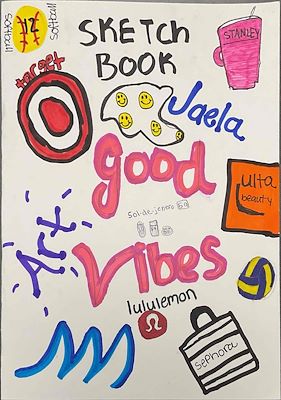 softball
#12
softball
SKETCH
BOOK
STANLEY
target
Jaela
good
ulta
beauty
sol de janeiro
Art
Vibes
lululemon
sephora